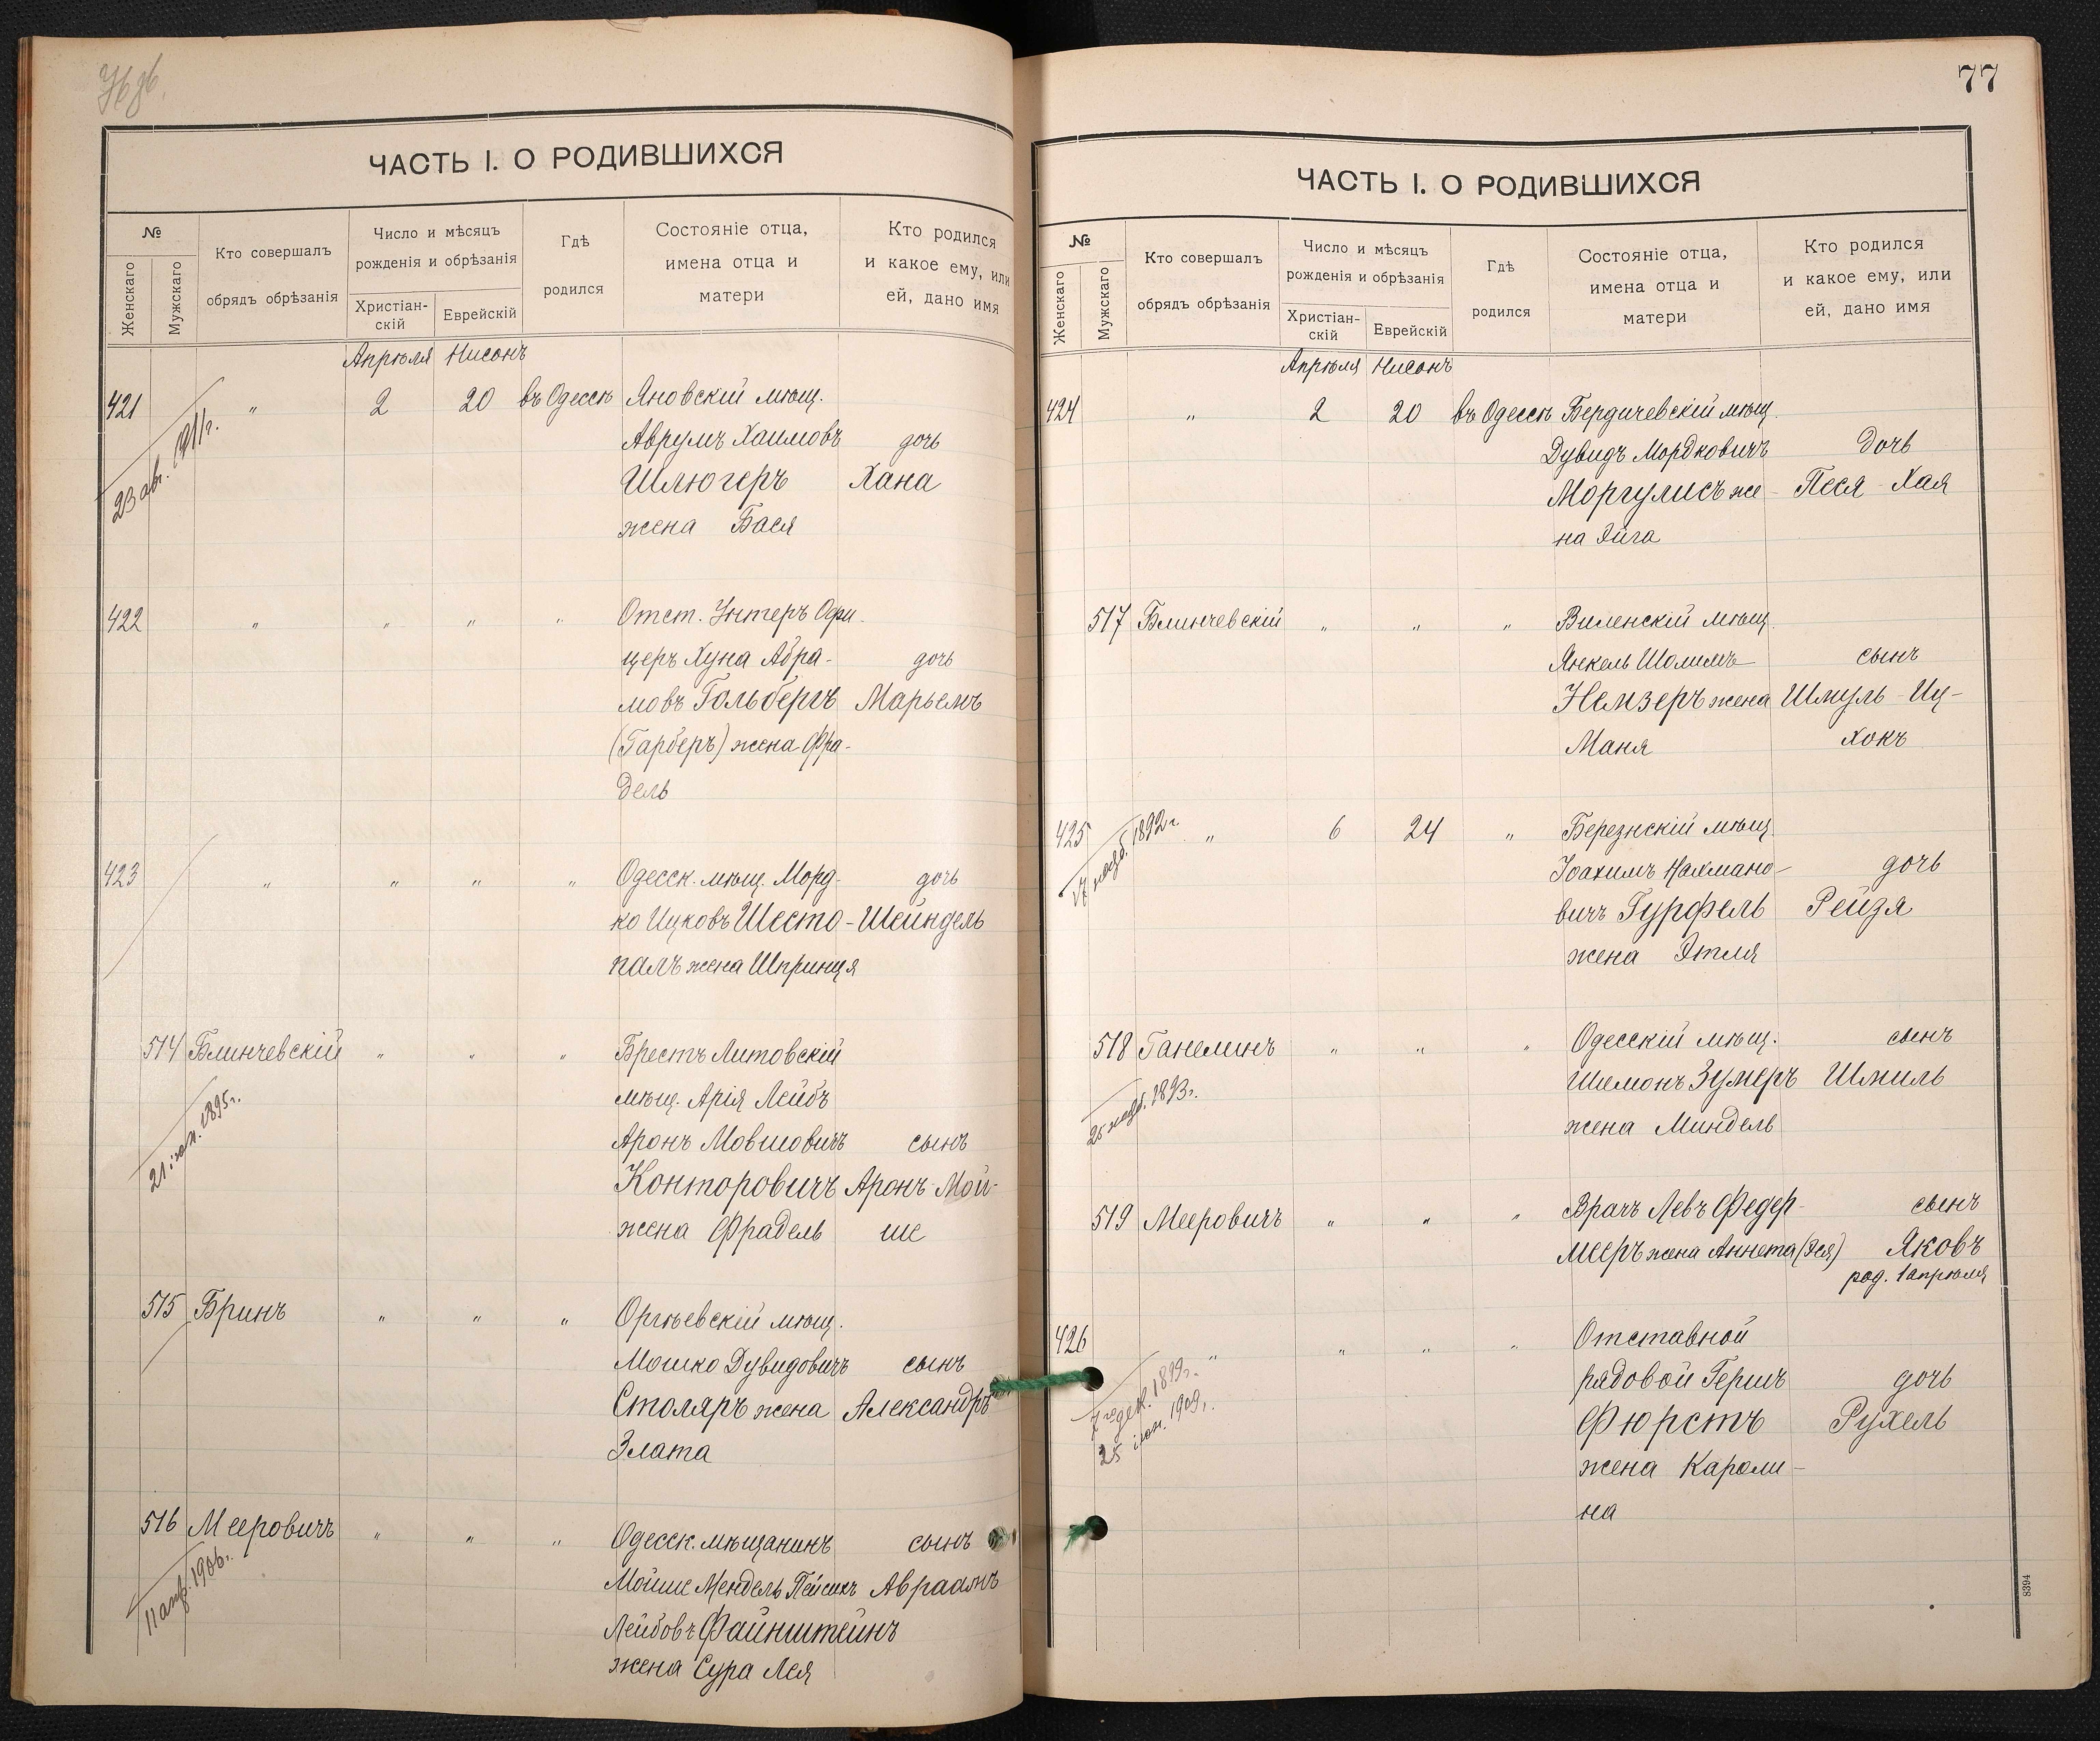 ЧАСТЬ I. О РОДИВШИХСЯ
№
Женскаго
Мужскаго
Кто совершалъ
обрядъ обрѣзанія
Число и мѣсяцъ
рожденія и обрѣзанія
Христіан-
скій
Еврейскій
Гдѣ
родился
Состояніе отца,
имена отца и
матери
Кто родился
и какое ему, или
ей, дано имя
Апрѣля Нисонъ
421 " 2 20 въ Одессѣ Яновскій мѣщ.
Аврумъ Хаимовъ дочь
Шлюгеръ Хана
жена Бася
23 авг. 1911г.
422 " " " " Отст. Унтеръ Офи-
церъ Хуна Абра- дочь
мовъ Гольбергъ Марьемъ
(Гарберъ) жена Фра-
дель
423 " " " " Одесск. мѣщ. Морд- дочь
ко Ицковъ Шесто- Шейндель
палъ жена Шпринця
514 Блинчевскій " " " Брестъ Литовскій
мѣщ. Арія Лейбъ
Аронъ Мовшовичъ сынъ
Конторовичъ Аронъ Мой-
жена Фрадель ше
21 1895г.
515 Бринъ " " " Оргѣевскій мѣщ.
Мошко Дувидовичъ сынъ
Столяръ жена Александръ
Злата
516 Мееровичъ " " " Одесск. мѣщанинъ сынъ
Мойше Мендель Пейсихъ Авраамъ
Лейбовъ Файнштейнъ
жена Сура Лея
11 апр. 1906г.
77
ЧАСТЬ I. О РОДИВШИХСЯ
№
Женскаго
Мужскаго
Кто совершалъ
обрядъ обрѣзанія
Число и мѣсяцъ
рожденія и обрѣзанія
Христіан-
скій
Еврейскій
Гдѣ
родился
Состояніе отца,
имена отца и
матери
Кто родился
и какое ему, или
ей, дано имя
Апрѣля Нисонъ
424 " 2 20 въ Одессѣ Бердичевскій мѣщ.
Дувидъ Мордковичъ дочь
Моргулисъ же- Песя - Хая
на Эйга
517 Блинчевскій " " " Виленскій мѣщ.
Янкель Шолимъ сынъ
Немзеръ жена Шмуль - Иц-
Маня хокъ
425 " 6 24 " Березнскій мѣщ.
Іоахимъ Нахмано- дочь
вичъ Гурфель Рейзя
жена Этля
17 нояб. 1892г.
518 Ганелинъ " " " Одесскій мѣщ. сынъ
Шимонъ Зумеръ Шмиль
жена Миндель
25 нояб. 1893г.
519 Мееровичъ " " " Врачъ Левъ Федер- сынъ
мееръ жена Аннета (Эся) Яковъ
род. 1 апрѣля
426 " " " " Отставной
рядовой Гершъ дочь
Фюрстъ Рухель
жена Кароли-
на
дек. 1899г.
25 1909г.
8394